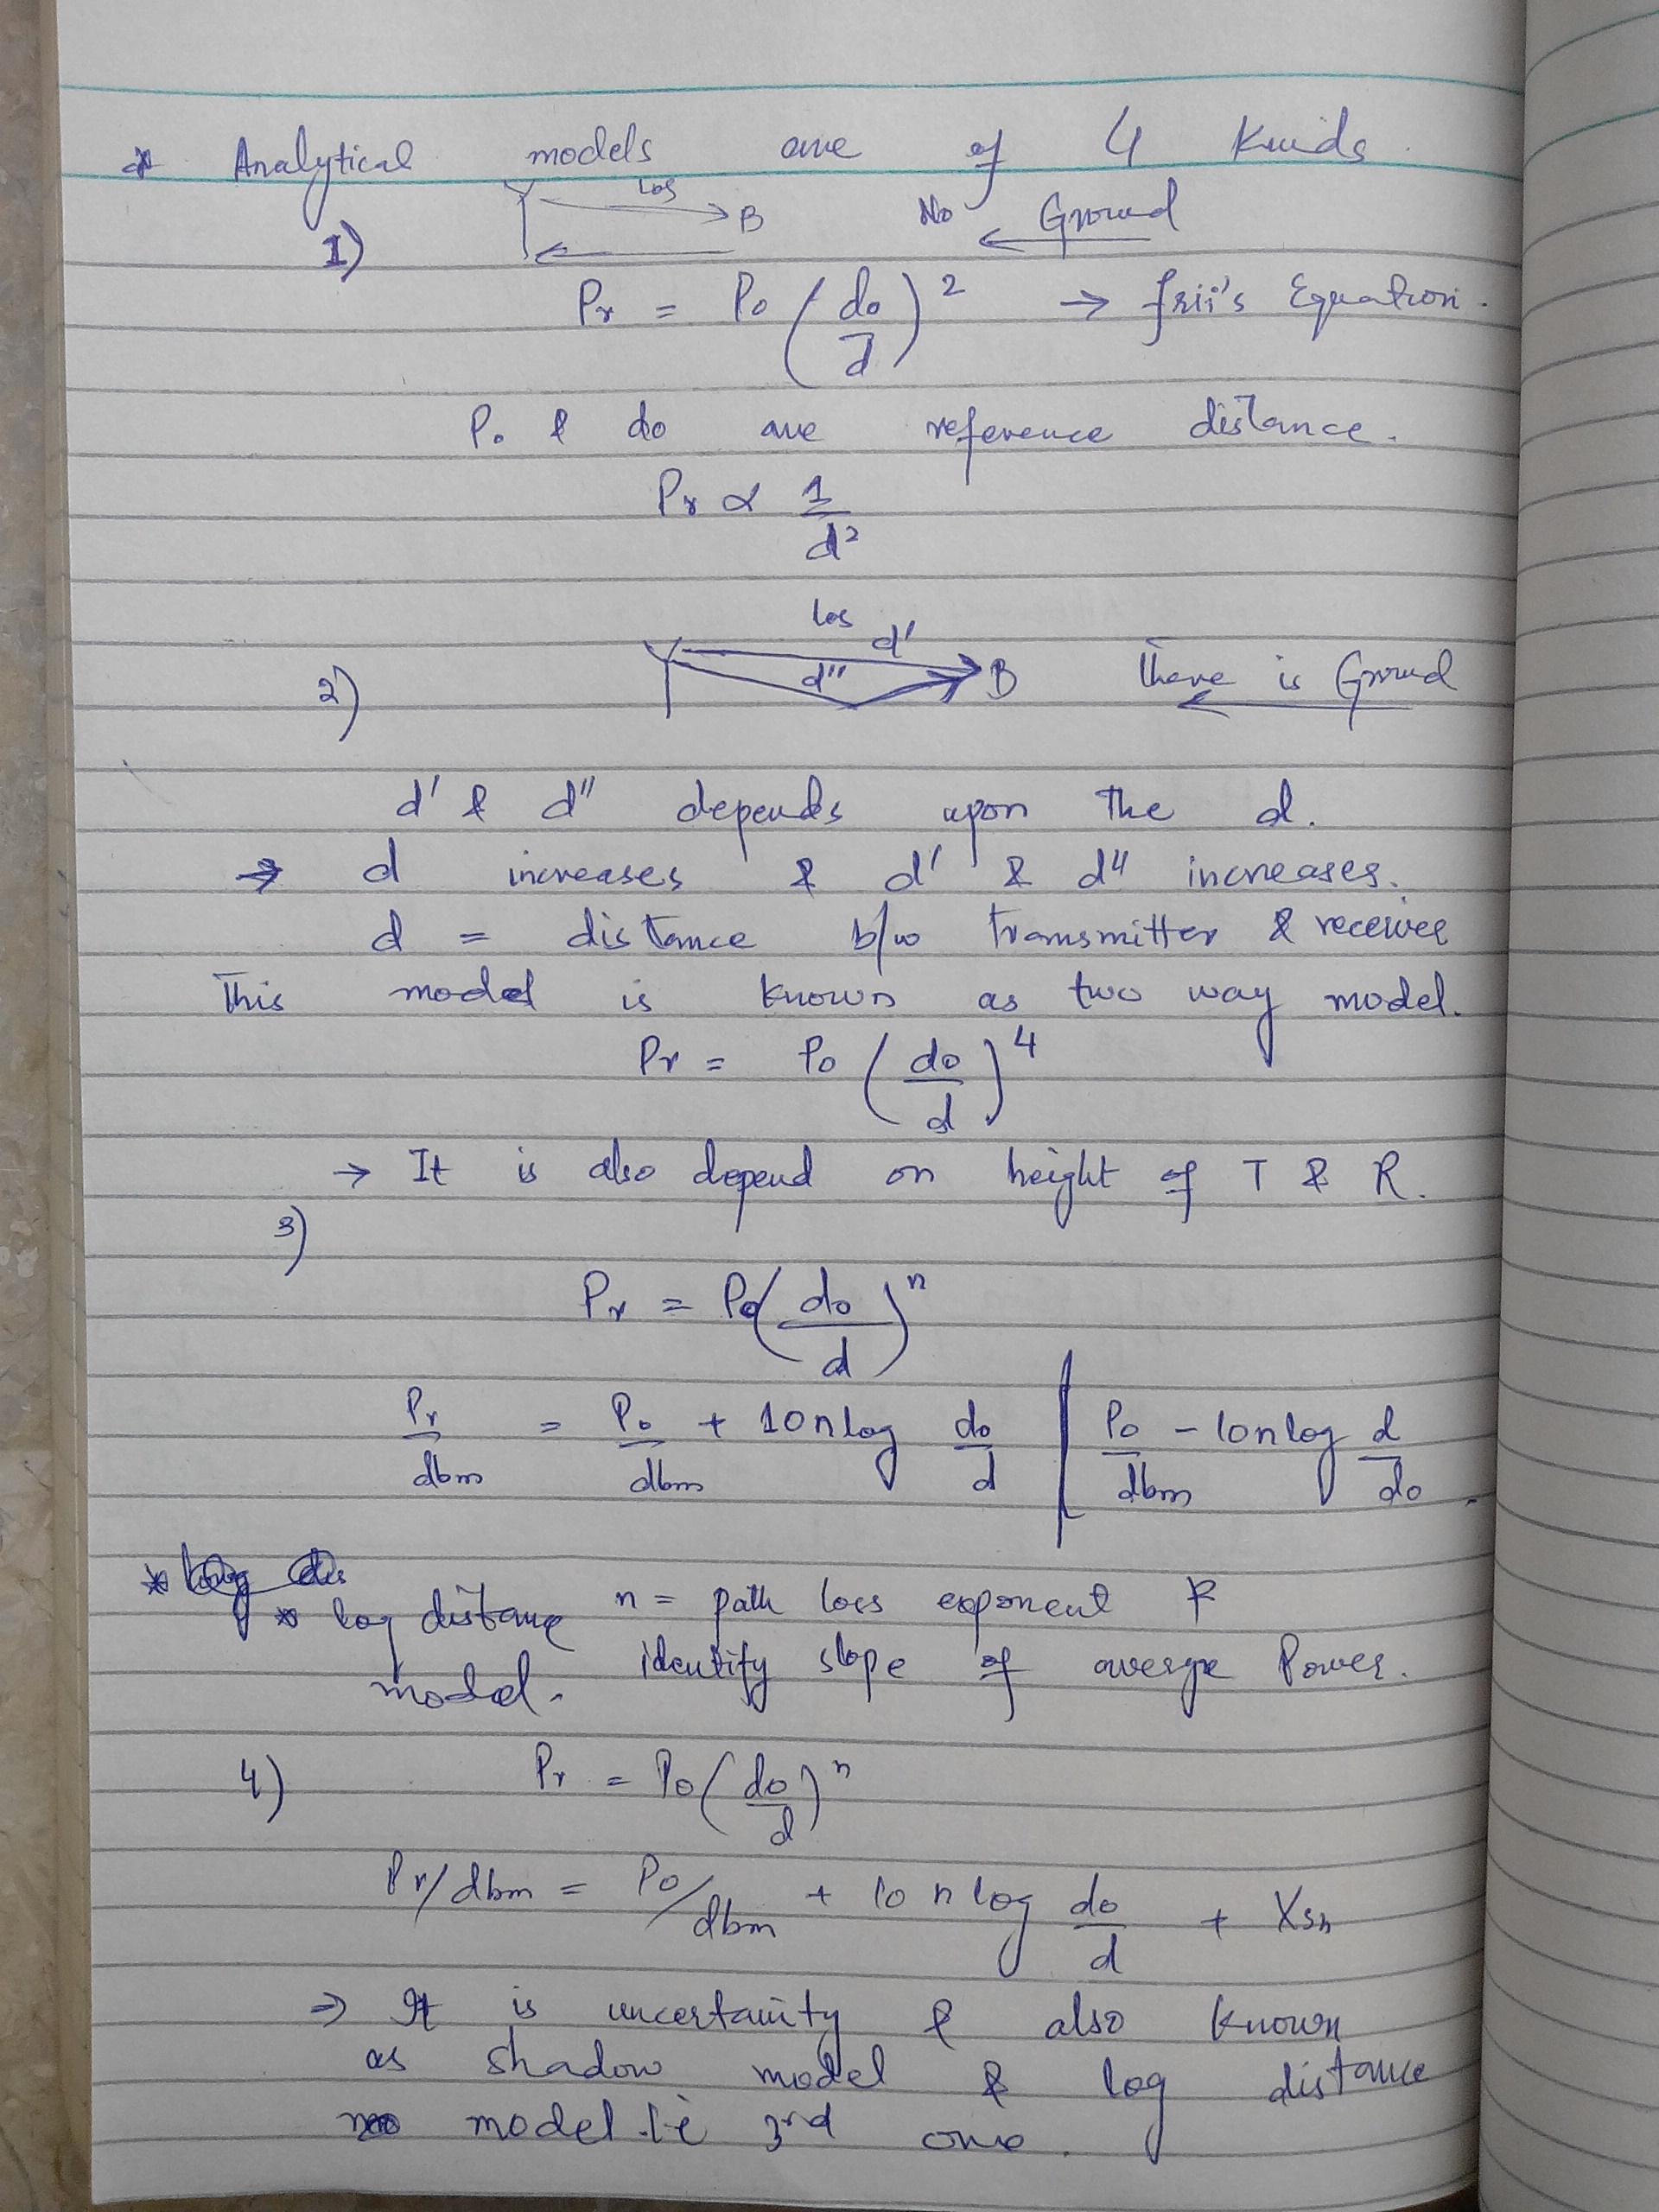 * Analytical models are of 4 kinds.
1) Los B No Ground
Pr = Po (do/d)² → frii's Equation.
Po & do are reference distance.
Pr ∝ 1/d²
los
2) d' d'' B There is Ground
d' & d'' depends upon the d.
→ d increases & d' & d'' increases.
d = distance b/w transmitter & receiver
This model is known as two way model.
Pr = Po (do/d)⁴
→ It is also depend on height of T & R.
3)
Pr = Po (do/d)ⁿ
Pr/dbm = Po/dbm + 10nlog do/d | Po/dbm - 10nlog d/do.
* log distance model.
n = path loss exponent &
identify slope of averge Power.
4) Pr = Po (do/d)ⁿ
Pr/dbm = Po/dbm + 10 n log do/d + Xsh
⇒ It is uncertainity & also known
as shadow model & log distance
model i.e 3rd one.